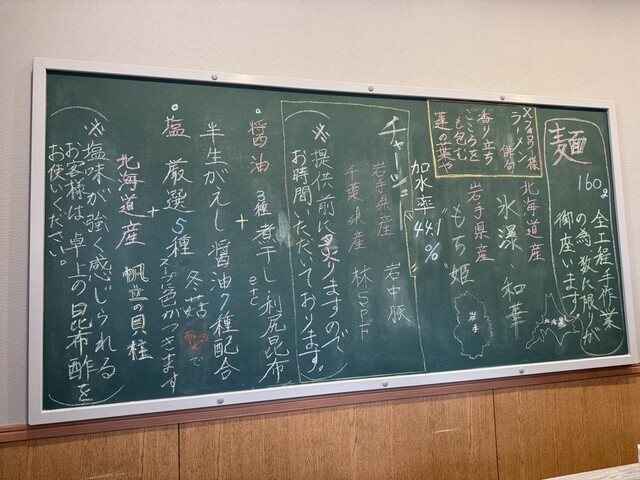 麺
160g
全工程手作業
の為、数に限りが
御座います。
北海道産
氷瀑、和華
北海道
岩手県産
"もち姫"
岩手
加水率
"44.1%"
ラブメン 俳句
香り立ち
こころを
も包む
蓮の葉や
チャーシュー
岩手県産 岩中豚
千葉県産 林SPF
(※提供前に炙りますので
お時間いただいております。)
醤油 3種煮干し 利尻昆布
etc
+
半生がえし 醤油7種配合
冬菇で
スープに色がつきます
塩 厳選5種
+
北海道産 帆立の貝柱
(※塩味が強く感じられる
お客様は卓上の昆布酢を
お使いください。)